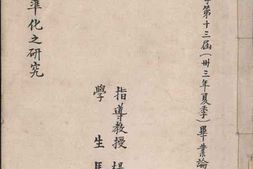 第十三屆(卅三年夏季)畢業論
準化之研究
指導教授
學生